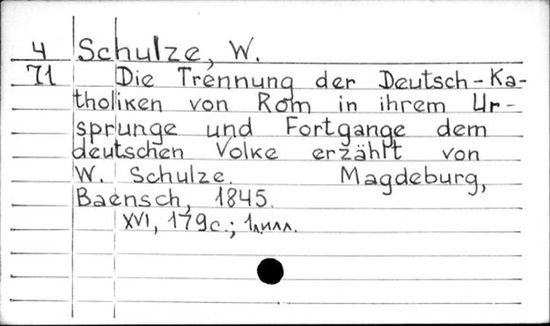 4 Schulze, W.
71 Die Trennung der Deutsch-Ka-
tholiken von Rom in ihrem Ur-
sprunge und Fortgange dem
deutschen Volke erzählt von
W. Schulze. Magdeburg,
Baensch, 1845.
XVI, 179с.; 1илл.